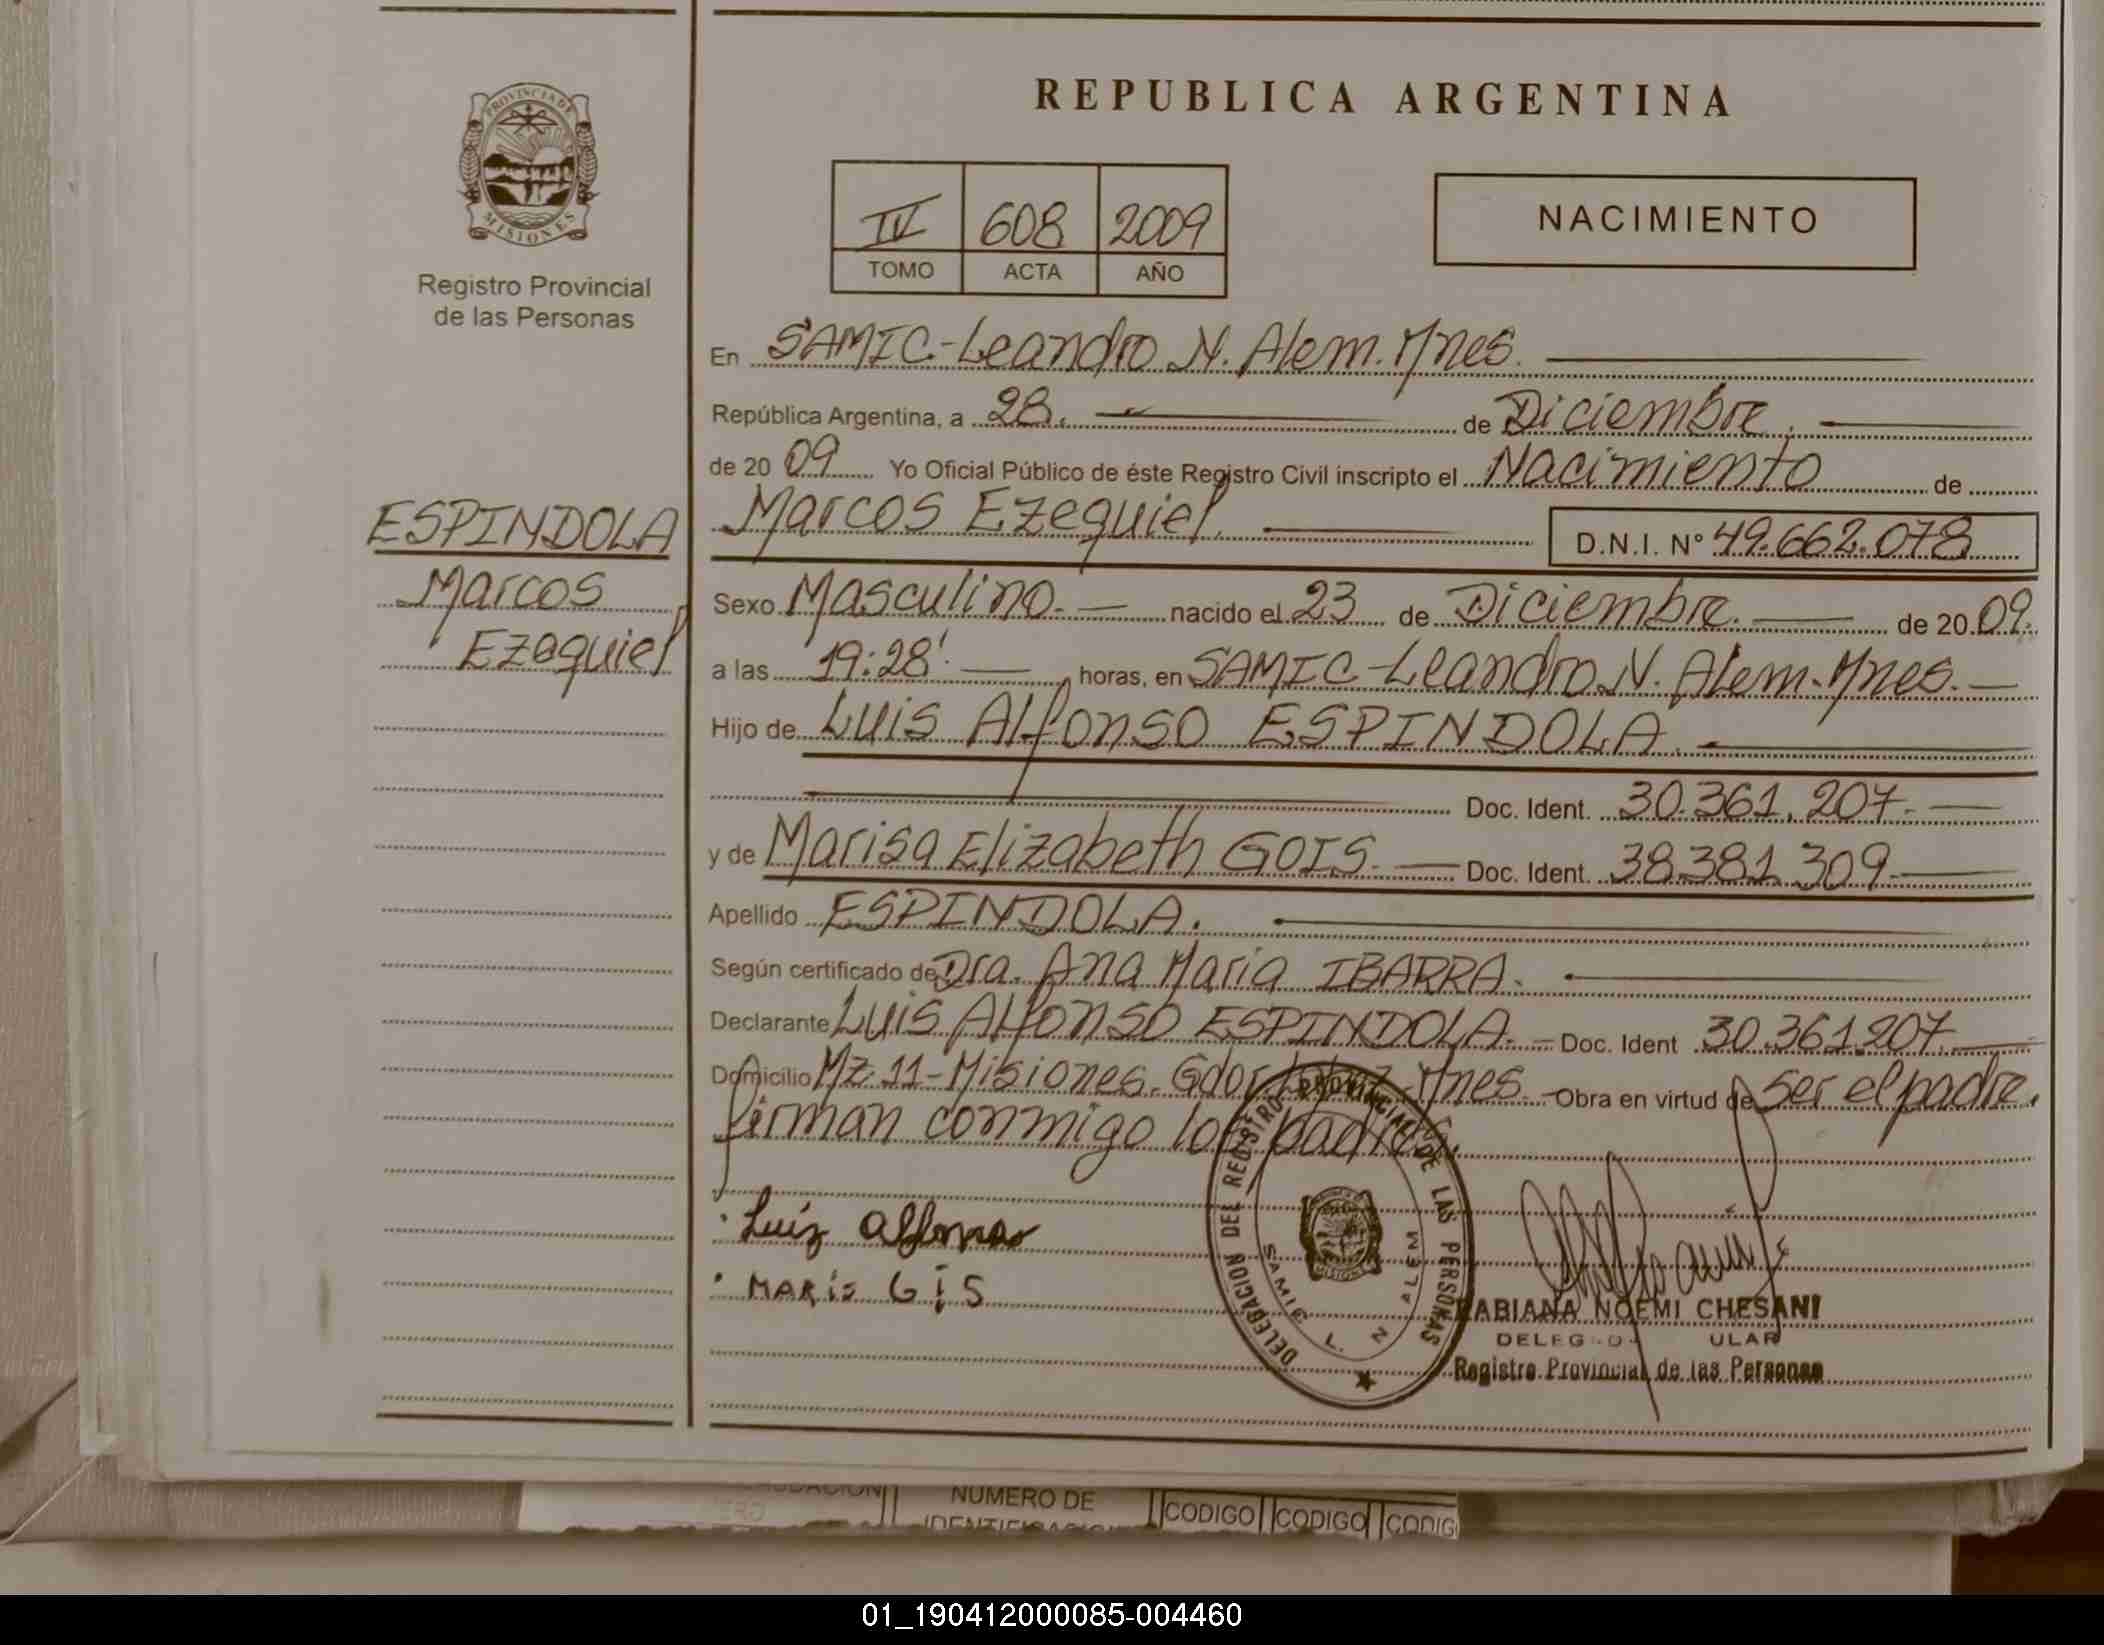 REPUBLICA ARGENTINA
PROVINCIA DE
MISIONES
Registro Provincial
de las Personas
IV 608 2009
TOMO ACTA AÑO
NACIMIENTO
En SAMIC-Leandro N. Alem. Mnes.
República Argentina, a 28. de Diciembre.
de 2009 Yo Oficial Público de éste Registro Civil inscripto el Nacimiento de
Marcos Ezequiel. D.N.I. N° 49.662.078
ESPINDOLA
Marcos
Ezequiel
Sexo Masculino. nacido el 23 de Diciembre. de 2009.
a las 19:28' horas, en SAMIC-Leandro N. Alem. Mnes.
Hijo de Luis Alfonso ESPINDOLA.
Doc. Ident. 30.361.207.
y de Marisa Elizabeth GOIS. Doc. Ident. 38.381.309
Apellido ESPINDOLA.
Según certificado de Dra. Ana Maria IBARRA.
Declarante Luis Alfonso ESPINDOLA. Doc. Ident 30.361.207.
Domicilio Mz. 11-Misiones. Gdor Mnes. Obra en virtud de Ser el padre.
firman conmigo los padres.
Luiz Alfonso
MARis GiS
DELEGACION DEL REGISTRO PROVINCIAL DE LAS PERSONAS
SAMIC L. N ALEM
MISIONES
FABIANA NOEMI CHESANI
Registro Provincial de las Personas
NUMERO DE
CODIGO CODIGO CODIG
01_190412000085-004460